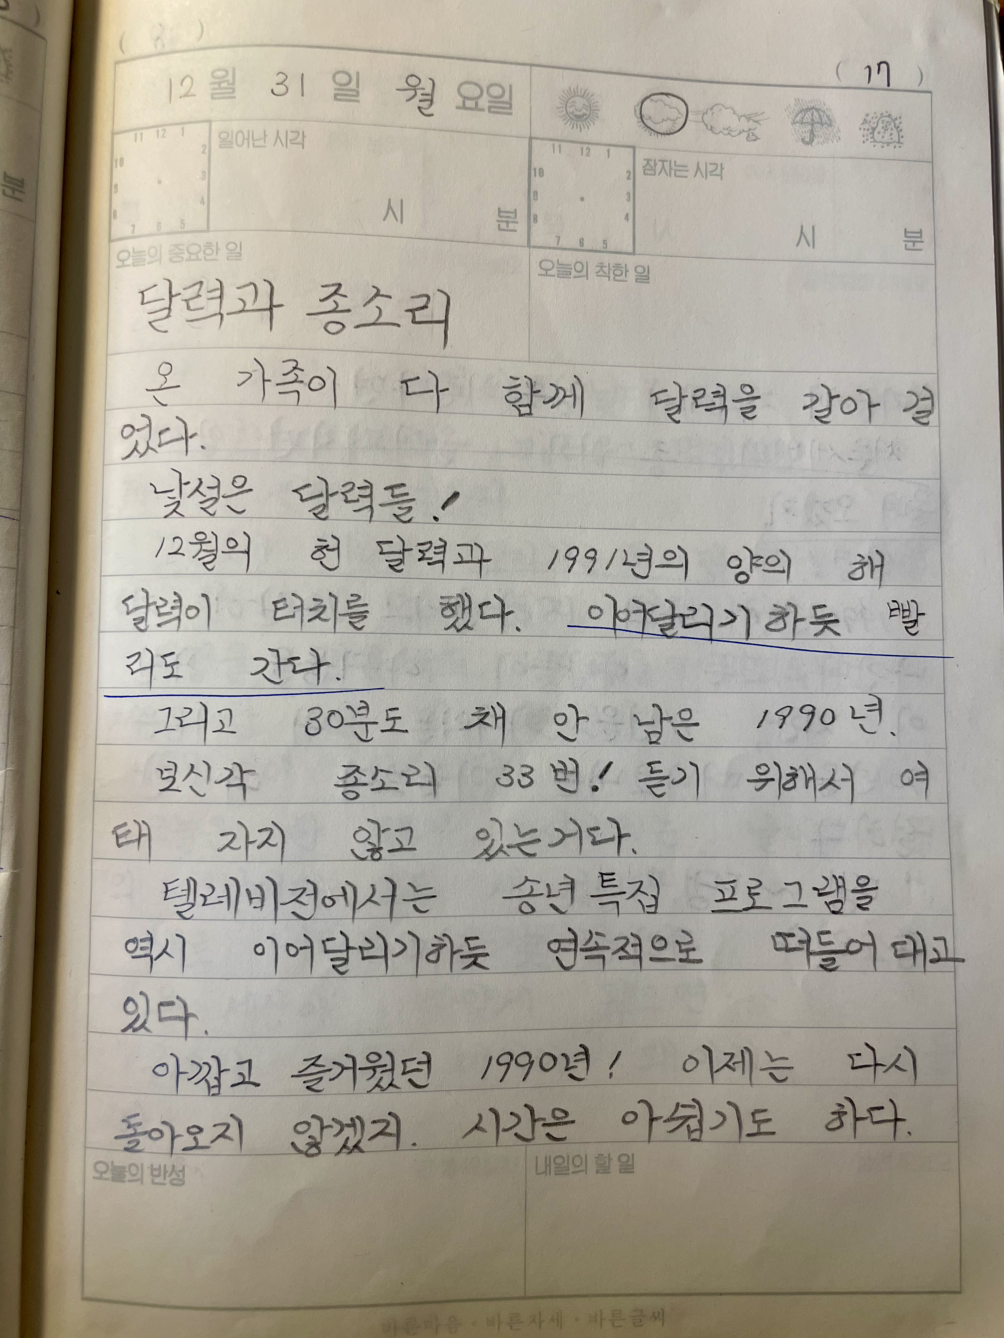 ( 17 )
12 월 31 일 월 요일
11 12 1
10 2
9 3
8 4
7 6 5
일어난 시각
시 분
11 12 1
10 2
9 3
8 4
7 6 5
잠자는 시각
시 분
오늘의 중요한 일
오늘의 착한 일
달력과 종소리
온 가족이 다 함께 달력을 갈아 걸
었다.
낯설은 달력들!
12월의 헌 달력과 1991년의 양의 해
달력이 터치를 했다. 이어달리기하듯 빨
리도 간다.
그리고 30분도 채 안 남은 1990년.
보신각 종소리 33번! 듣기 위해서 여
태 자지 않고 있는거다.
텔레비전에서는 송년 특집 프로그램을
역시 이어달리기하듯 연속적으로 떠들어 대고
있다.
아깝고 즐거웠던 1990년! 이제는 다시
돌아오지 않겠지. 시간은 아쉽기도 하다.
오늘의 반성
내일의 할 일
바른마음·바른자세·바른글씨